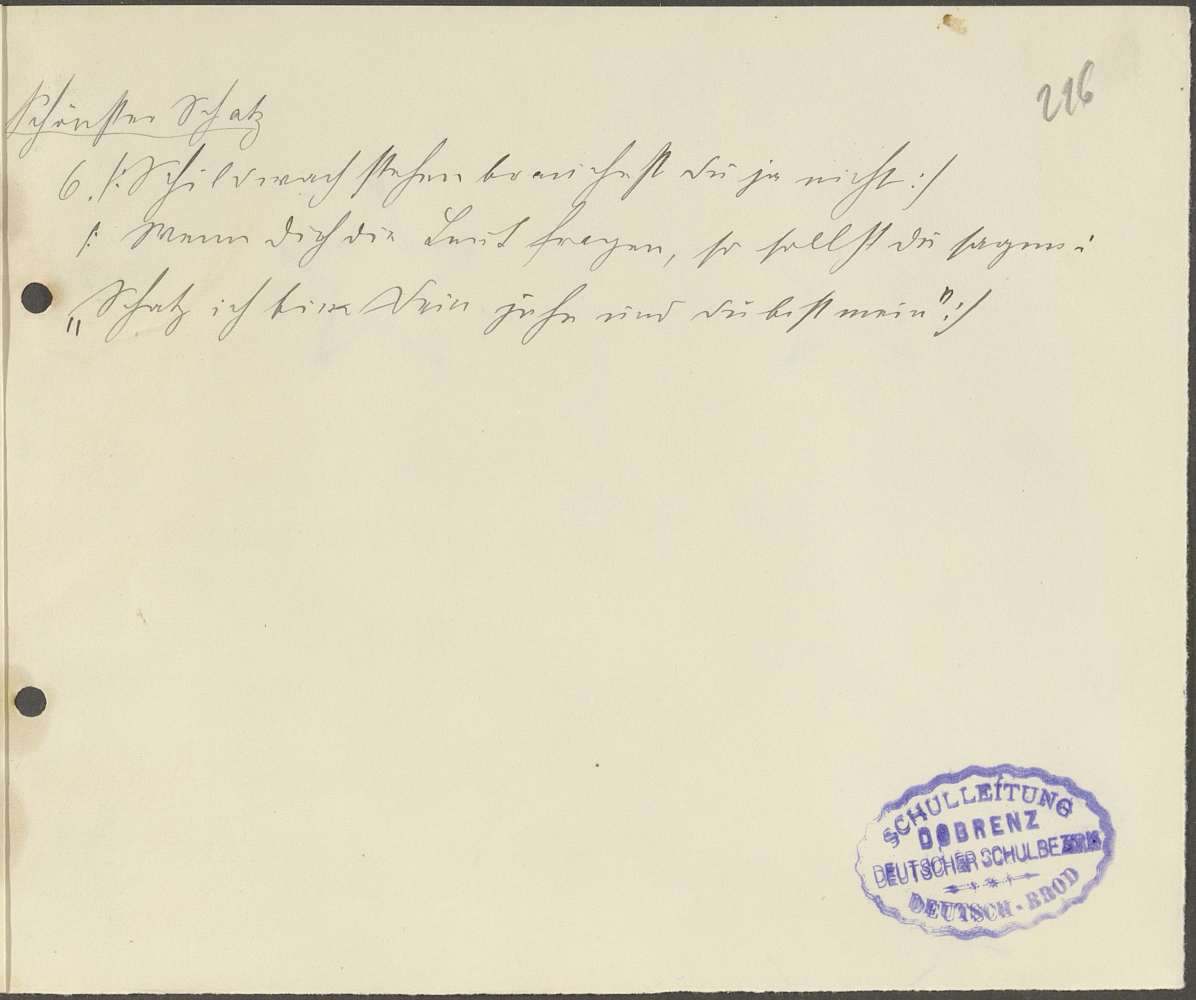 216
Schönster Schatz
6. /: Schildwach stehen brauchest du ja nicht :/
/: Wenn dich die Leut fragen, so sollst du sagen:
„Schatz ich bin Dein juhe und du bist mein" :/
SCHULLEITUNG
DOBRENZ
DEUTSCHER SCHULBEZIRK
DEUTSCH-BROD